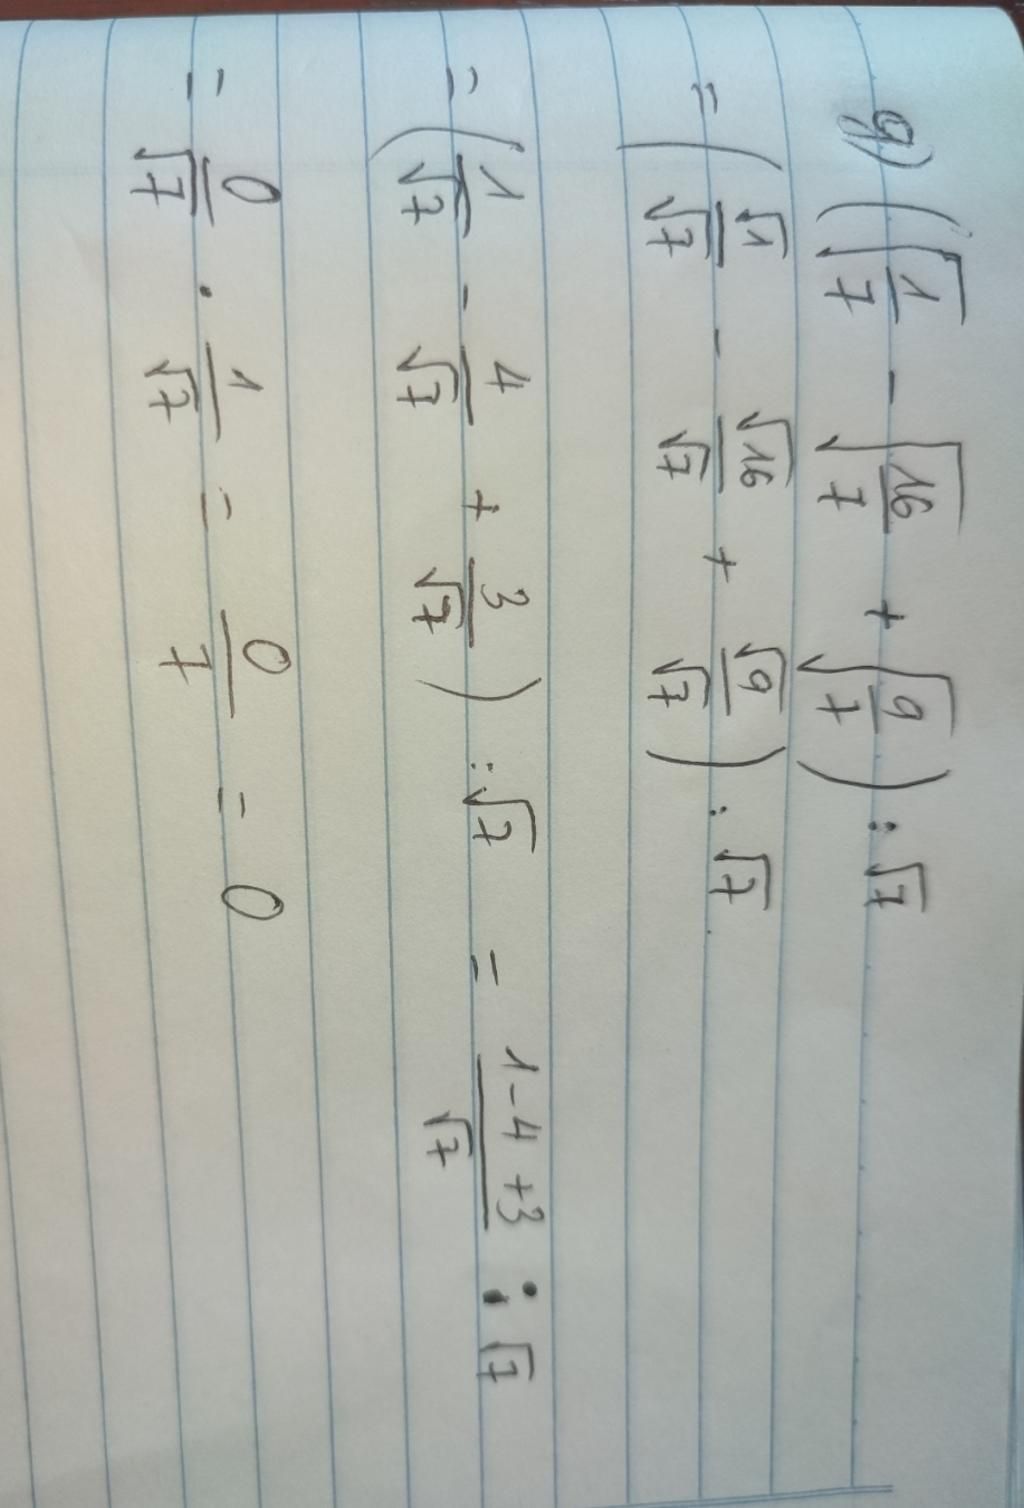 g) (√(1/7) - √(16/7) + √(9/7)) : √7
= (√1/√7 - √16/√7 + √9/√7) : √7
= (1/√7 - 4/√7 + 3/√7) : √7 = (1-4+3)/√7 : √7
= 0/√7 · 1/√7 = 0/7 = 0